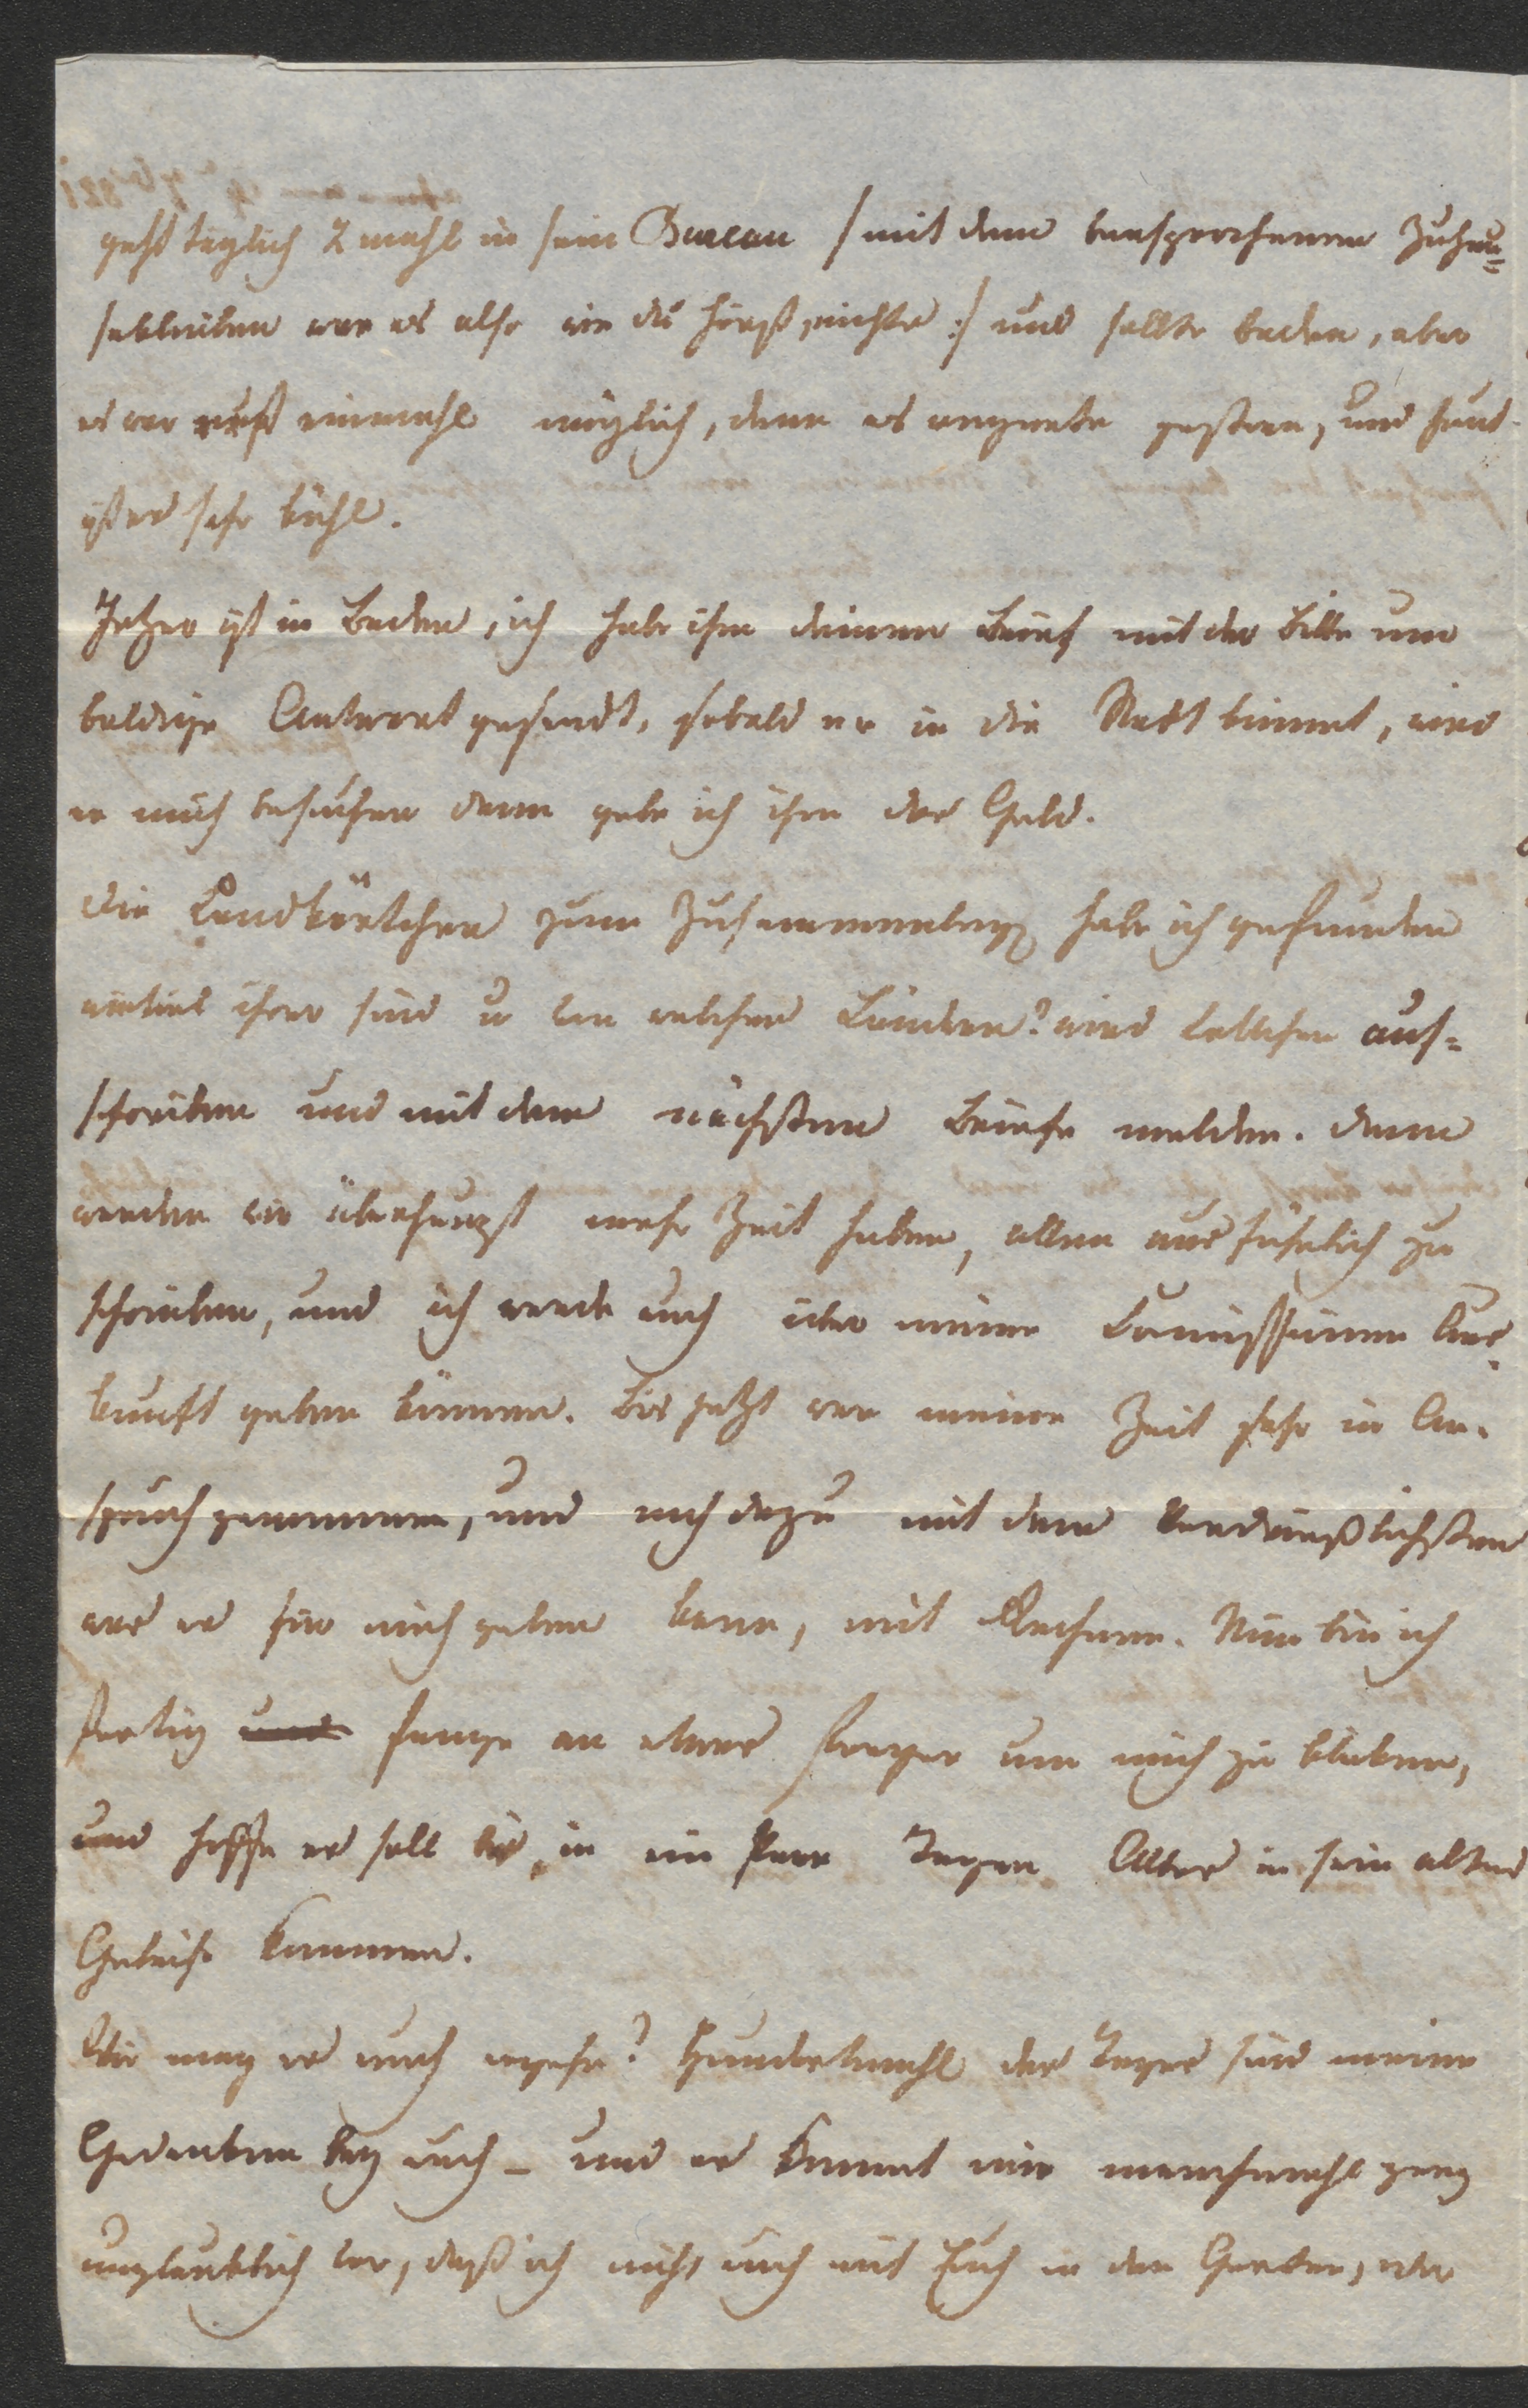 geht täglich 2 mahl in sein Bureau /mit dem versprochenen Zuhau=
sebleiben war es also wie du hörst, nichts :/ und sollte baden, aber
es war nicht einmahl möglich, denn es regnete gestern, und heut
ist es sehr kühl.
ist in Baden, ich habe ihm deinen Brief mit der Bitte um
baldige Antwort gesendt, sobald er in die Stadt kömmt, wird
er mich besuchen dann gebe ich ihm das Geld.
die Landkärtchen zum Zusammenlegen habe ich gefunden
wieviel ihrer sind u von welchen Ländern? wird auf=
schreiben und mit dem nächsten Briefe melden. dann
werden wir überhaupt mehr Zeit haben, allen ausführlich zu
schreiben, und ich werde euch über meine Commissionen Aus
kunft geben können. Bis jetzt war meine Zeit sehr in An=
spruch genommen, und noch dazu mit dem Verdrießlichsten
was es für mich geben kann, mit Rechnen. Nun bin ich
fertig und fange an etwas freyer um mich zu blicken,
und hoffe es soll bis in ein Paar Tagen Alles in sein altes
Geleise kommen.
Wie mag es euch ergehn? Hundertmahl des Tages sind meine
Gedanken bey euch – und es kommt mir manchmahl ganz
unglaublich vor, daß ich nicht auch mit Euch in den Garten, oder